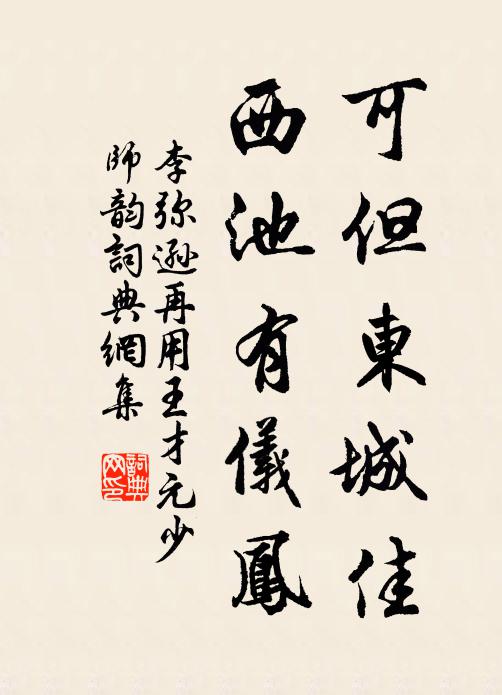 可但東城佳
西池有儀鳳
李弥遜再用王才元少
師韵詞典網集
詞典
网印